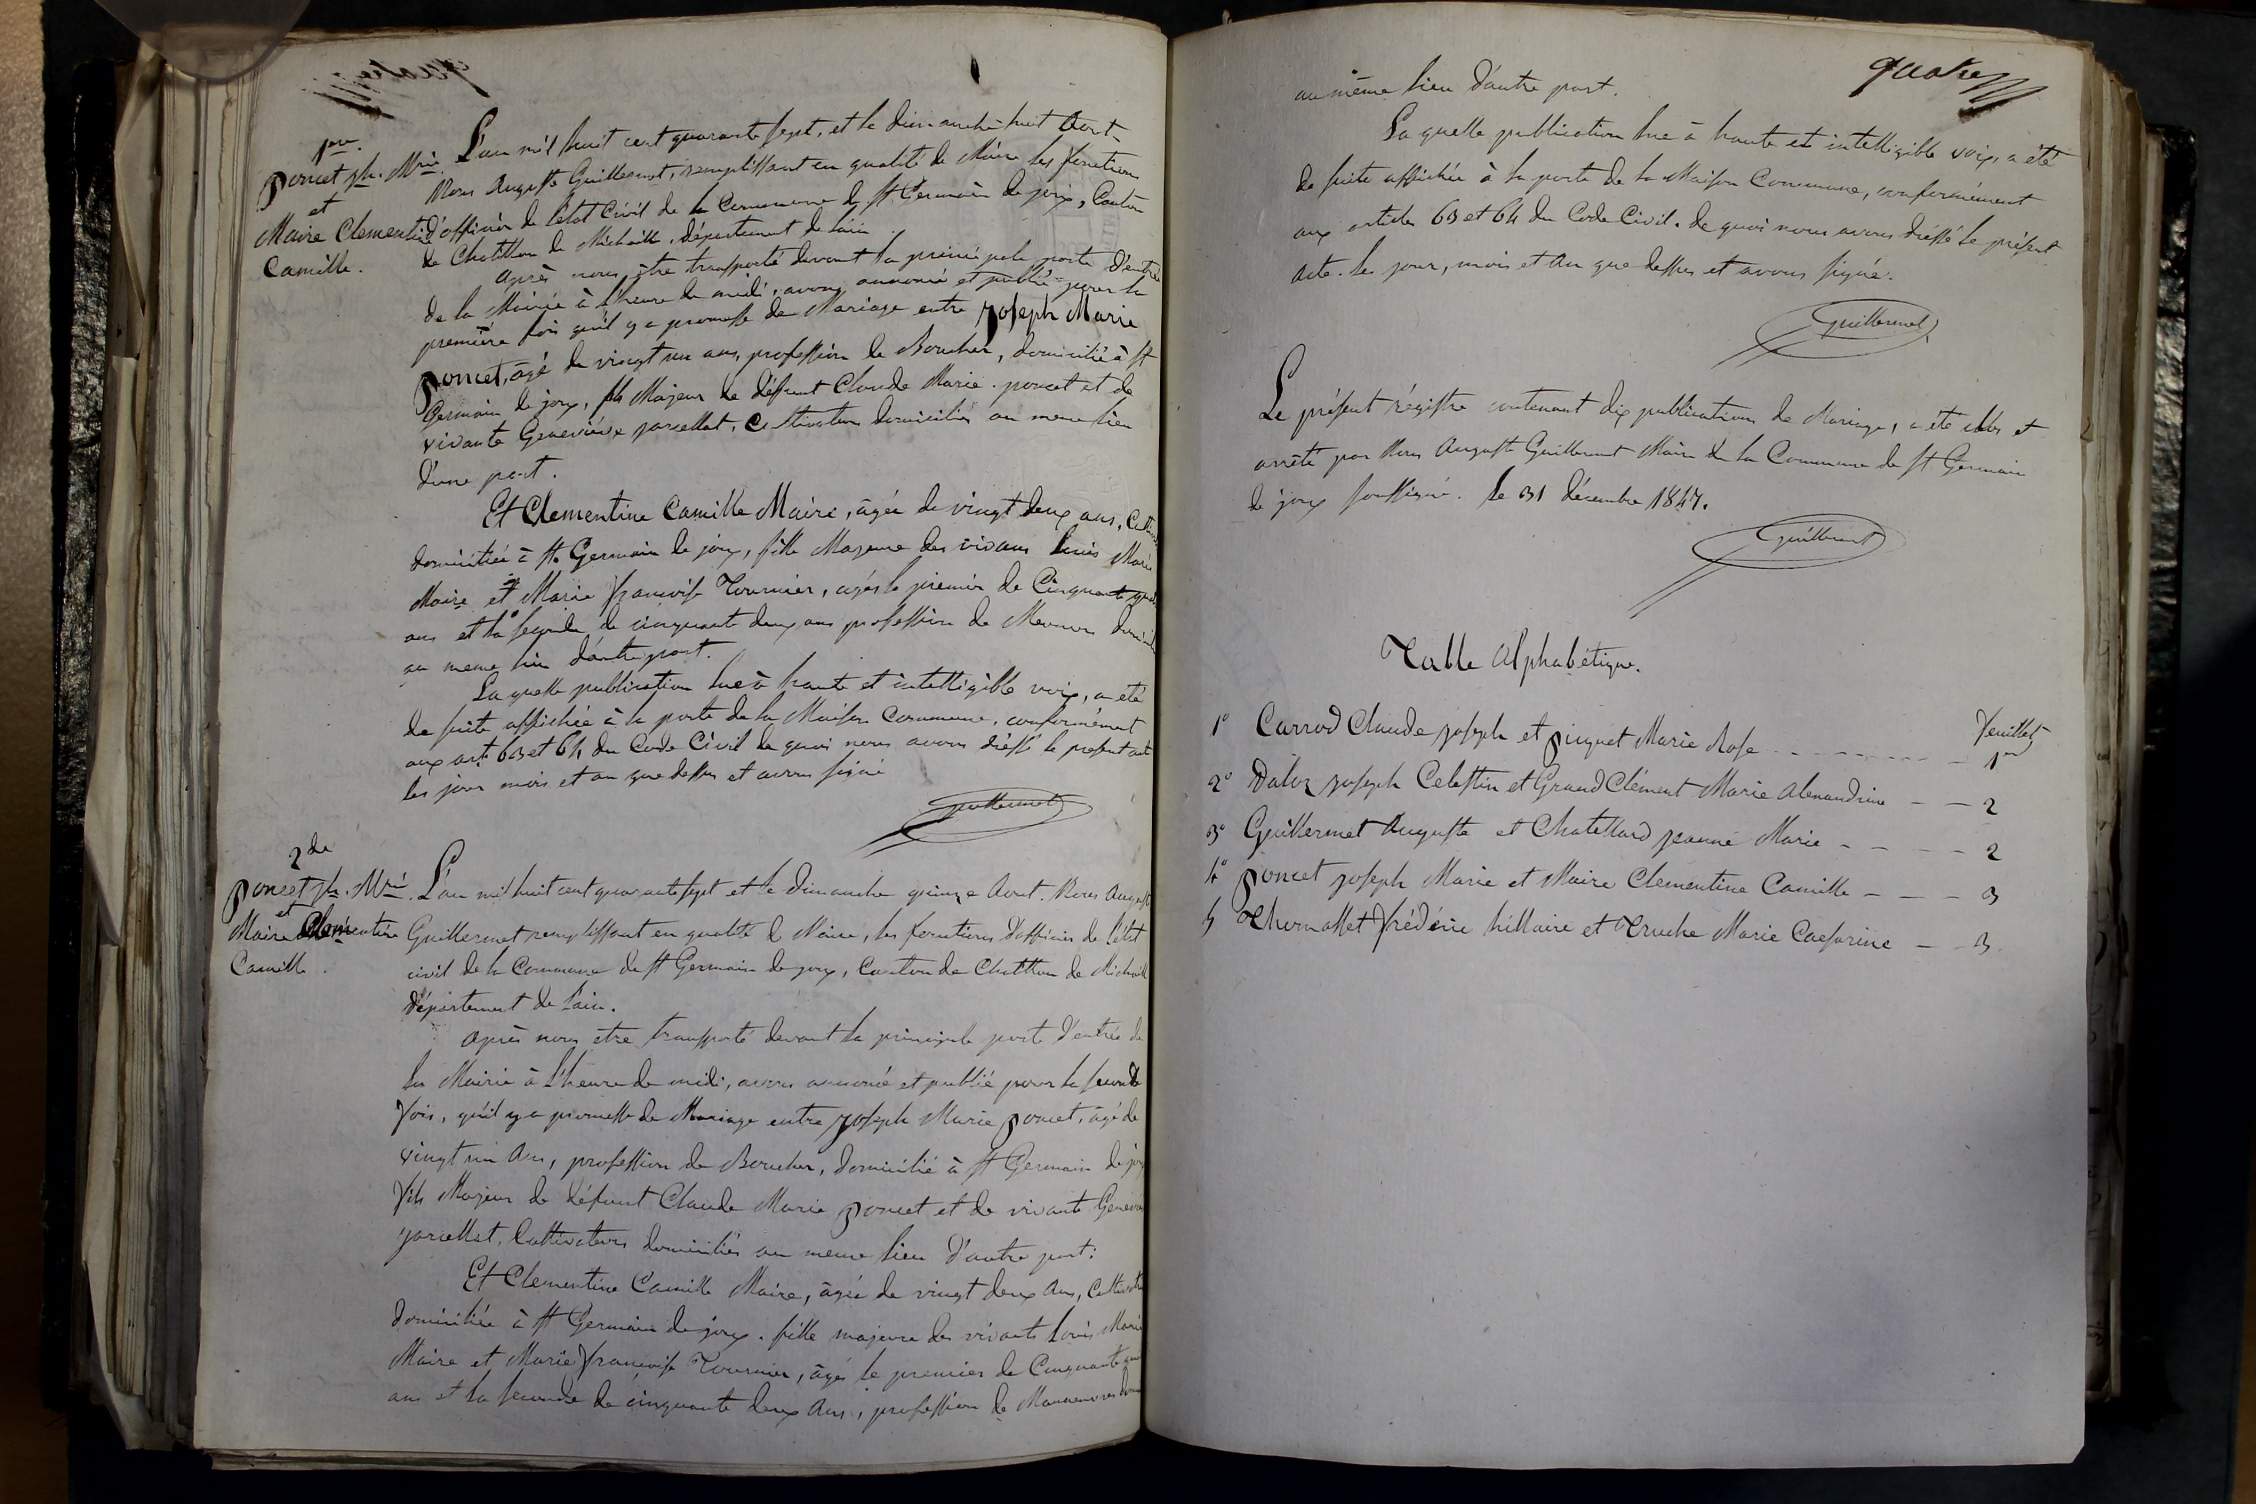 1re.
Poncet Jh. Mrie
et
Maire Clementine
Camille.
L'an mil huit cent quarante sept, et le dimanche huit Aout,
Nous Auguste Guillermet, remplissant en qualité de Maire les fonctions
d'officier de l'état Civil de la Commune de St Germain de joux, Canton
de Chatillon de Michaille, département de l'ain
Après nous être transporté devant la principale porte d'entrée
de la Mairie à l'heure de midi, avons annoncé et publié pour la
première fois qu'il y a promesse de Mariage entre Joseph Marie
Poncet, âgé de vingt un ans, profession de Boucher, domicilié à St
Germain de joux, fils Majeur de défunt Claude Marie poncet et de
vivante Geneviève, Cultivateurs domiciliés au meme lieu
d'une part.
Et Clementine Camille Maire, âgée de vingt deux ans,
domiciliée à St. Germain de joux, fille Majeure des vivans Louis Marie
Maire et Marie françoise Tournier, agés le premier de Cinquante
ans et la seconde de cinquante deux ans profession de
au meme lieu d'autre part.
La quelle publication lue à haute et intelligible voix, a été
de suite affichée à la porte de la Maison Commune, conformément
aux art. 63 et 64 du Code Civil de quoi nous avons dréssé le present acte
les jour mois et an que dessus et avons signé
Guillermet
2de
Poncet Jh. Mrie
et
Maire Clémentine
Camille.
L'an mil huit cent quarante sept et le dimanche quinze Aout. Nous Auguste
Guillermet remplissant en qualité de Maire, les fonctions d'officier de l'état
civil de la Commune de St Germain de joux, Canton de Chatillon de Michaille
département de l'ain.
Après nous etre transporté devant la principale porte d'entrée de
la Mairie à l'heure de midi, avons annoncé et publié pour la seconde
fois, qu'il y a promesse de Mariage entre Joseph Marie Poncet, âgé de
vingt un Ans, profession de Boucher, domicilié à St Germain de joux
fils Majeur de défunt Claude Marie Poncet et de vivante
Cultivateurs domiciliés au meme lieu d'autre part:
Et Clementine Camille Maire, âgée de vingt deux Ans,
domiciliée à St Germain de joux. fille majeure des vivants Louis Marie
Maire et Marie françoise Tournier, âgés le premier de Cinquante
ans et la seconde de cinquante deux Ans, profession de
quatre
au même lieu d'autre part.
La quelle publication lue à haute et intelligible voix, a été
de suite affichée à la porte de la Maison Commune, conformément
aux articles 63 et 64 du Code Civil. de quoi nous avons dréssé le présent
acte. les jour, mois et an que dessus et avons signé.
Guillermet
Le présent régistre contenant dix publications de Mariage, a été clos et
arrêté par Nous Auguste Guillermet Maire de la Commune de St Germain
de joux soussigné. le 31 décembre 1847.
Guillermet
Table Alphabétique.
feuillets
1° Carrod Claude joseph et Piquet Marie Rose - - - 1er
2° Daloz joseph Celestin et Grand Clément Marie Alexandrine - - 2
3° Guillermet Auguste et Chatellard jeanne Marie - - - 2
4° Poncet joseph Marie et Maire Clementine Camille - - - 3
5 Thomasset frédéric hillaire et Truche Marie Caesarine - - 3